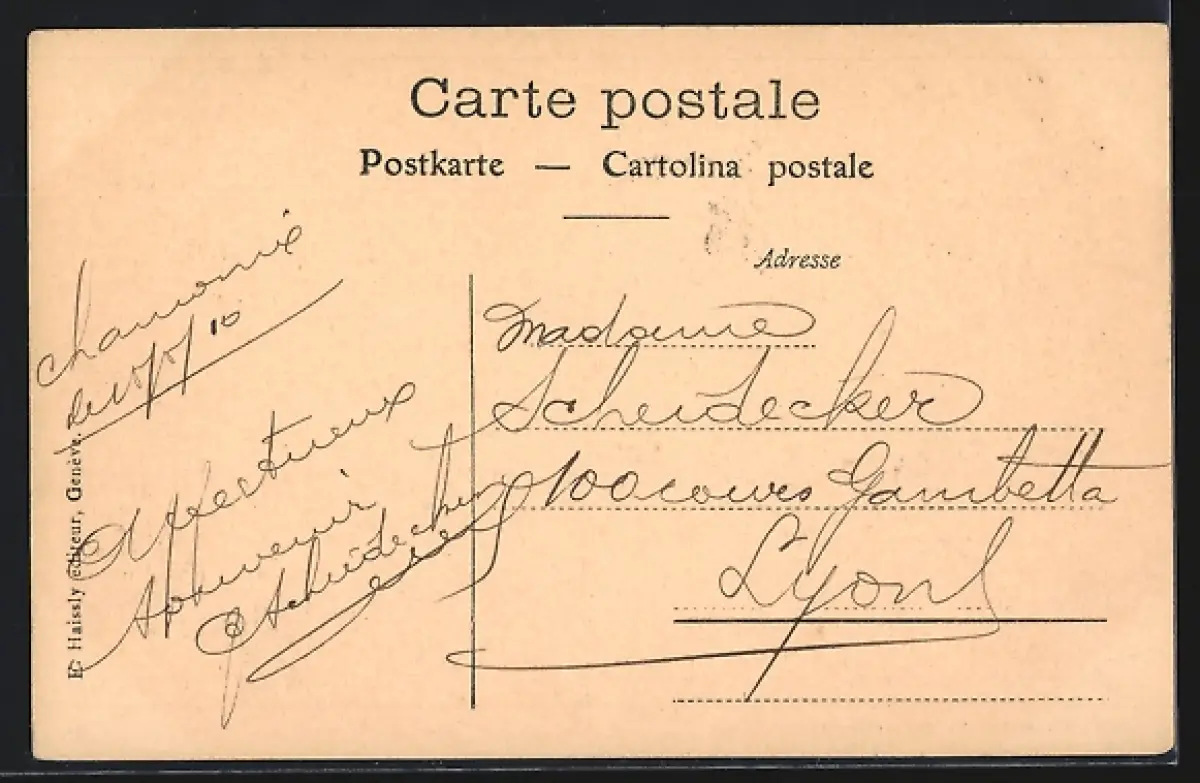 Carte postale
Postkarte — Cartolina postale
Adresse
Chamonix
10
Affectueux
souvenir
Scheidecker
Madame
Scheidecker
100 cours Gambetta
Lyon
E. Haissly éditeur, Genève.